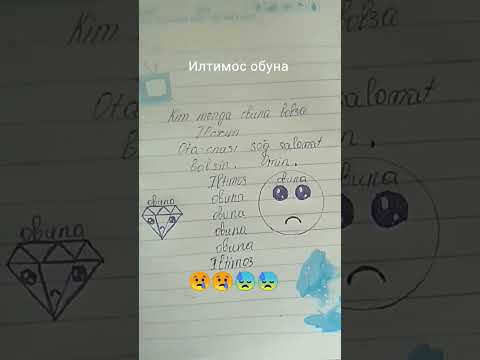 Илтимос обуна
Kim menga obuna bolsa
Ota-onasi soğ salomat
bolsin. Omin.
Iltimos
obuna
obuna
obuna
obuna
obuna
obuna
Iltimos
obuna